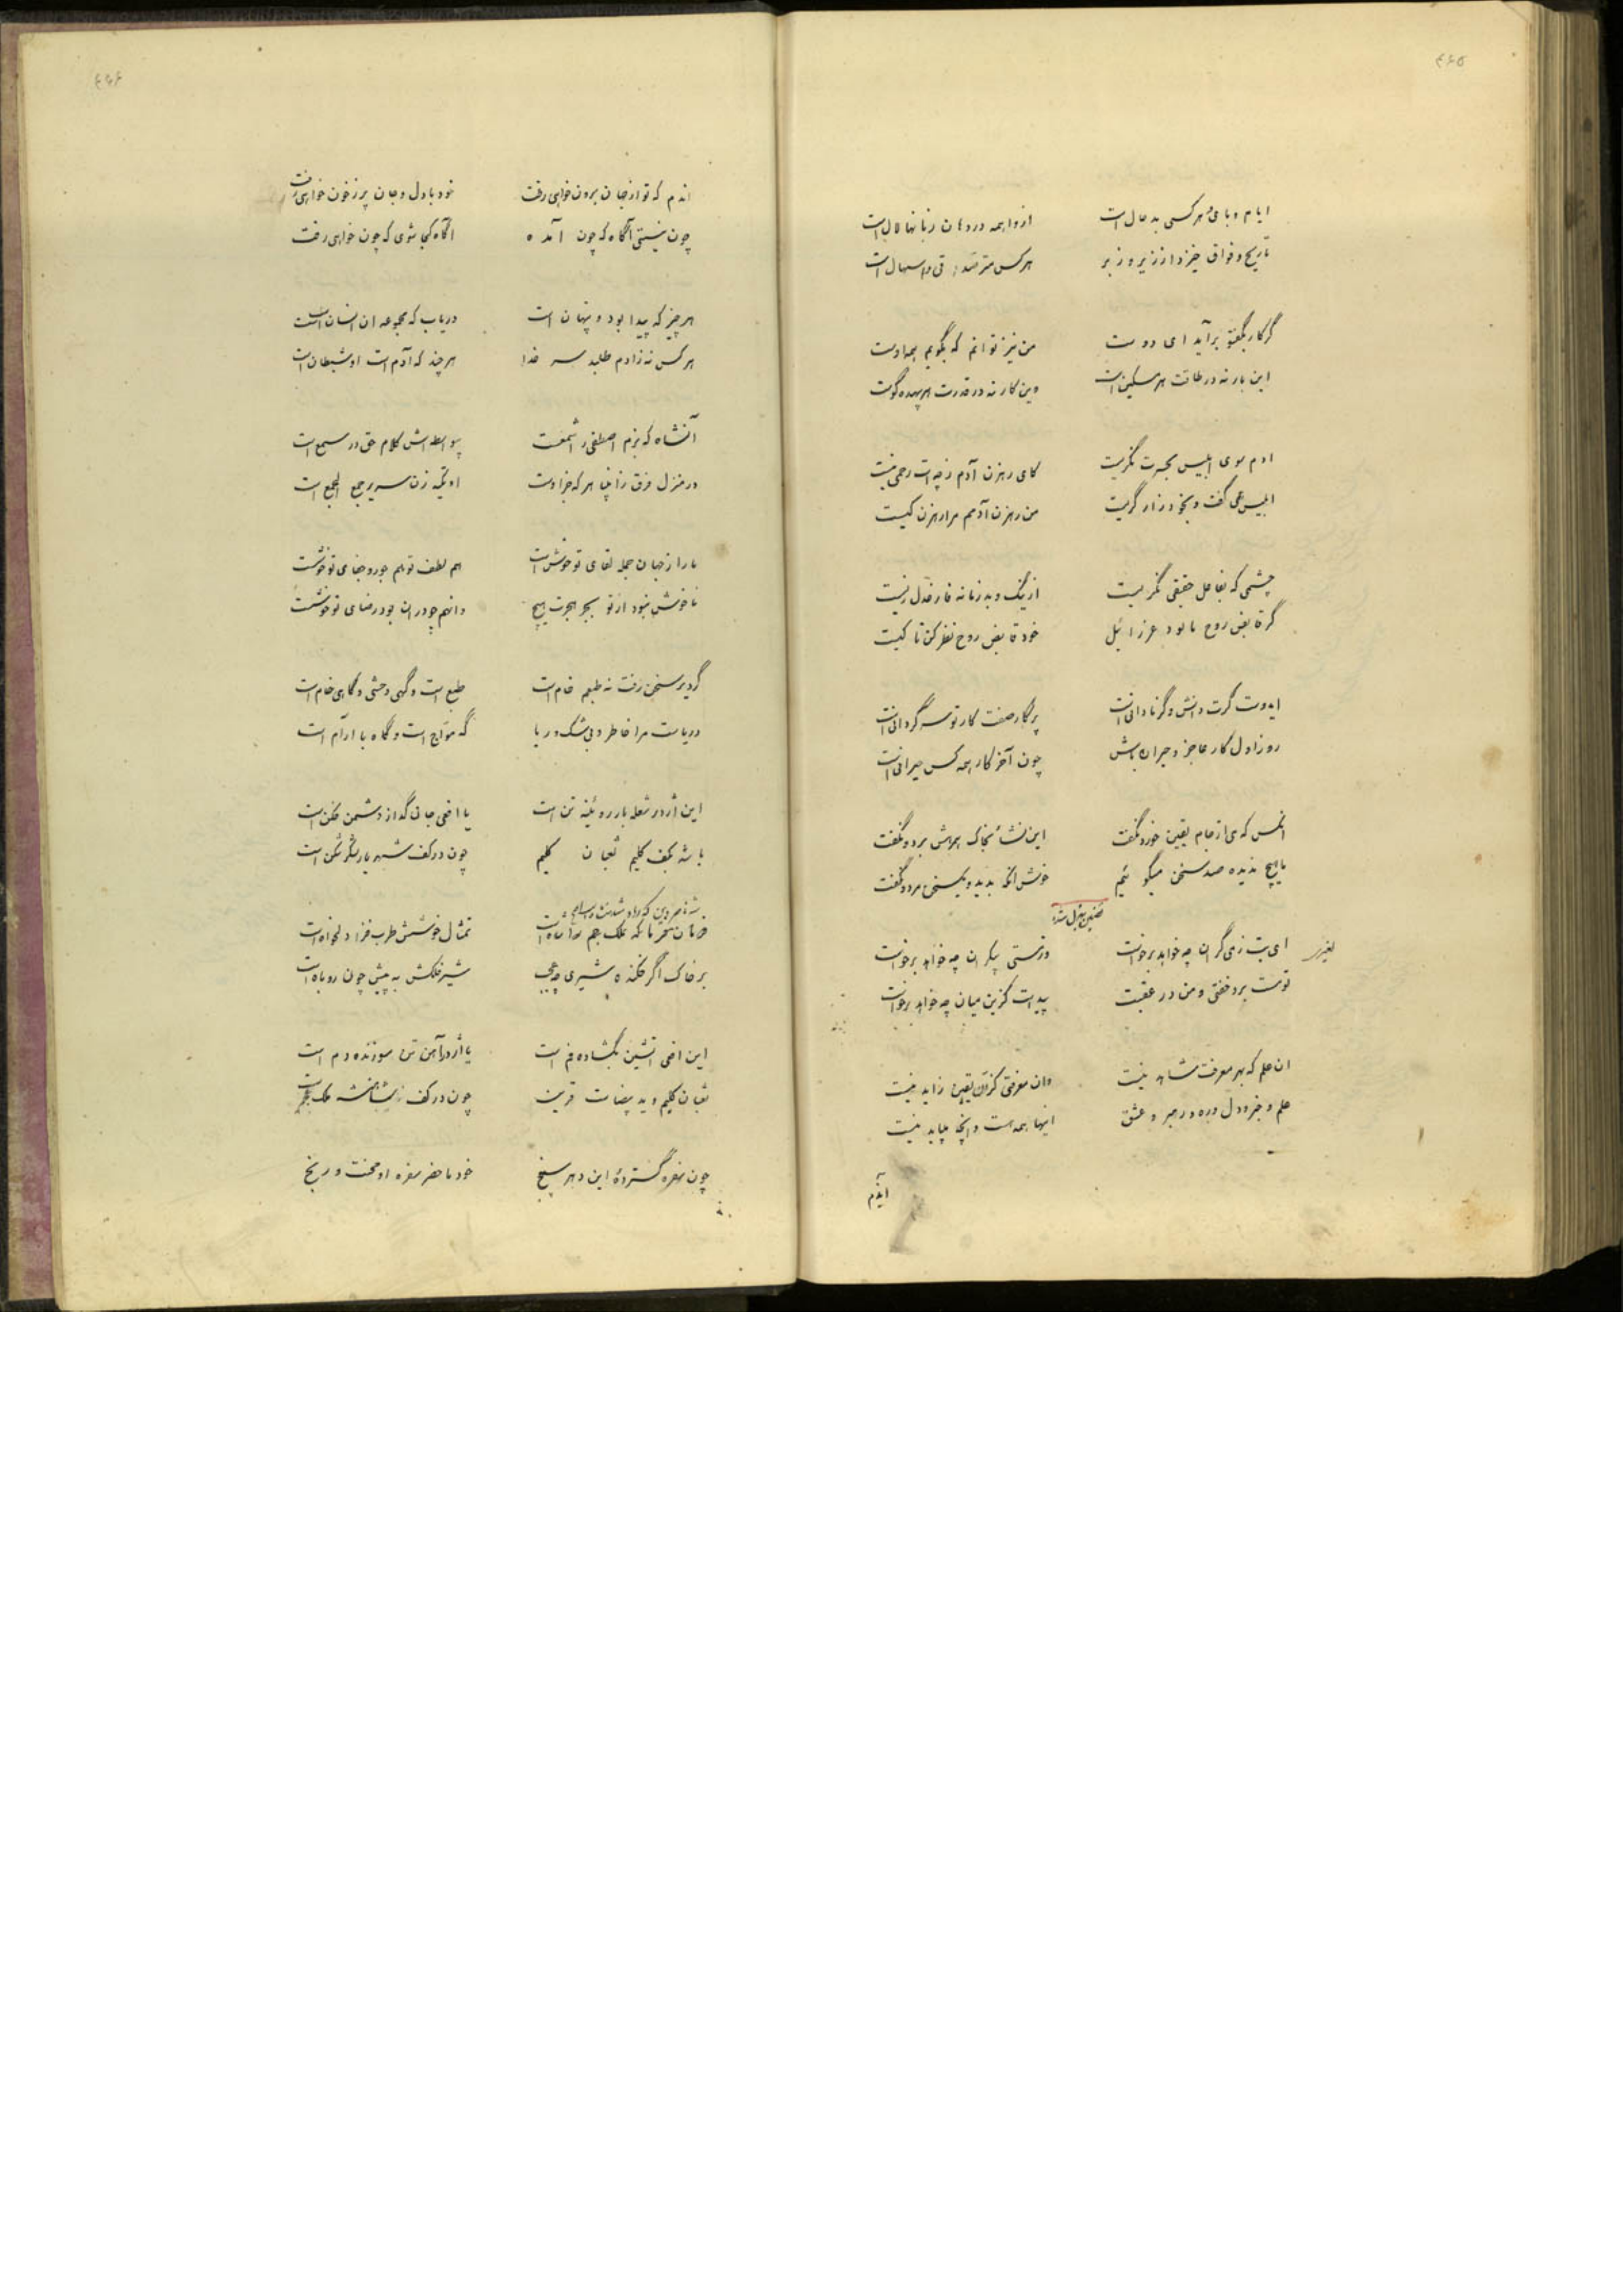 ایام وبا و هر کسی بد حال است
از واهمه در دهان زبانها لال است
تا ریح و فواق خیزد از زیر و زبر
هر کس مترصد قی و اسهال است
گر کار بگفتگو برآید ای دوست
من نیز توانم که بگویم همه اوست
این بار نه در طاقت هر مسکین است
وین کار نه در قدرت هر بیهده گوست
ادم سوی ابلیس بحیرت نگریست
کای رهزن آدم ز چه ات رحمی نیست
ابلیس همی گفت و بخود زار گریست
من رهزن آدمم مرا رهزن کیست
چشمی که بفاعل حقیقی نگریست
از نیک و بد زمانه فارغدل زیست
گر قابض روح ما بود عزرائیل
خود قابض روح نظر کن تا کیست
ایدوست گرت دانش و گر نادانی است
پرگار صفت کار تو سرگردانی است
روز اول کار عاجز و حیران باش
چون آخر کار همه کس حیرانی است
انکس که می از جام یقین خورد نگفت
این نشأ بخاک همرهش برد و نگفت
ما هیچ ندیده صد سخن میگوئیم
خوش انکه بدید و یک سخن مرد و نگفت
ای بت ز می گران چه خواهد برخاست
وز مستی بیکران چه خواهد برخاست
تو مست برو خفتی و من در عقبت
پیداست کزین میان چه خواهد برخاست
ان علم که بهر معرفت شاهد نیست
وان معرفتی کزان یقین زاید نیست
علم و خبر و دل و ره و رهبر و عشق
اینها همه هست و انچه میباید نیست
آندم
اندم که تو از جهان برون خواهی رفت
خود با دل و جان پر ز خون خواهی رفت
چون نیستی آگاه که چون آمده
اگاه کجا شوی که چون خواهی رفت
هر چیز که پیدا بود و پنهان است
دریاب که مجموعه ان انسان است
هر کس نه ز ادم طلبد سر خدا
هر چند که آدم است او شیطان است
آنشاه که بزم اصطفی را شمعست
بیواسطه اش کلام حق در سمع است
در منزل فرق زانبیا هر که جز اوست
او تکیه زن سریر جمع الجمع است
ما را ز جهان جمله لقای تو خوش است
هم لطف تو هم جور و جفای تو خوشست
ناخوش نبود از تو بجز هجرت هیچ
وانهم چو در ان بود رضای تو خوشست
گر دیر سخن رفت نه طبعم خام است
طبع است و گهی وحشی و گاهی خام است
دریاست مرا خاطر و بی شک دریا
گه مواج است و گاه با ارام است
این اژدر شعله بار روئینه تن است
یا افعی جان گداز دشمن فکن است
باشد بکف کلیم ثعبان کلیم
چون در کف شهریار لشکر شکن است
تمثال خوشش طرب فزا دلخواه است
بر خاک اگر فکنده شیری چه عجب
شیر فلکش به پیش چون روباه است
این افعی اتشین بگشاده فم است
یا اژدر آهن تن سوزنده دم است
ثعبان کلیم و ید بیضاست قرین
چون در کف شاهنشه ملک عجم است
چون سفره گستردهٔ این دهر سپنج
خود ما حضر سفره او محنت و رنج